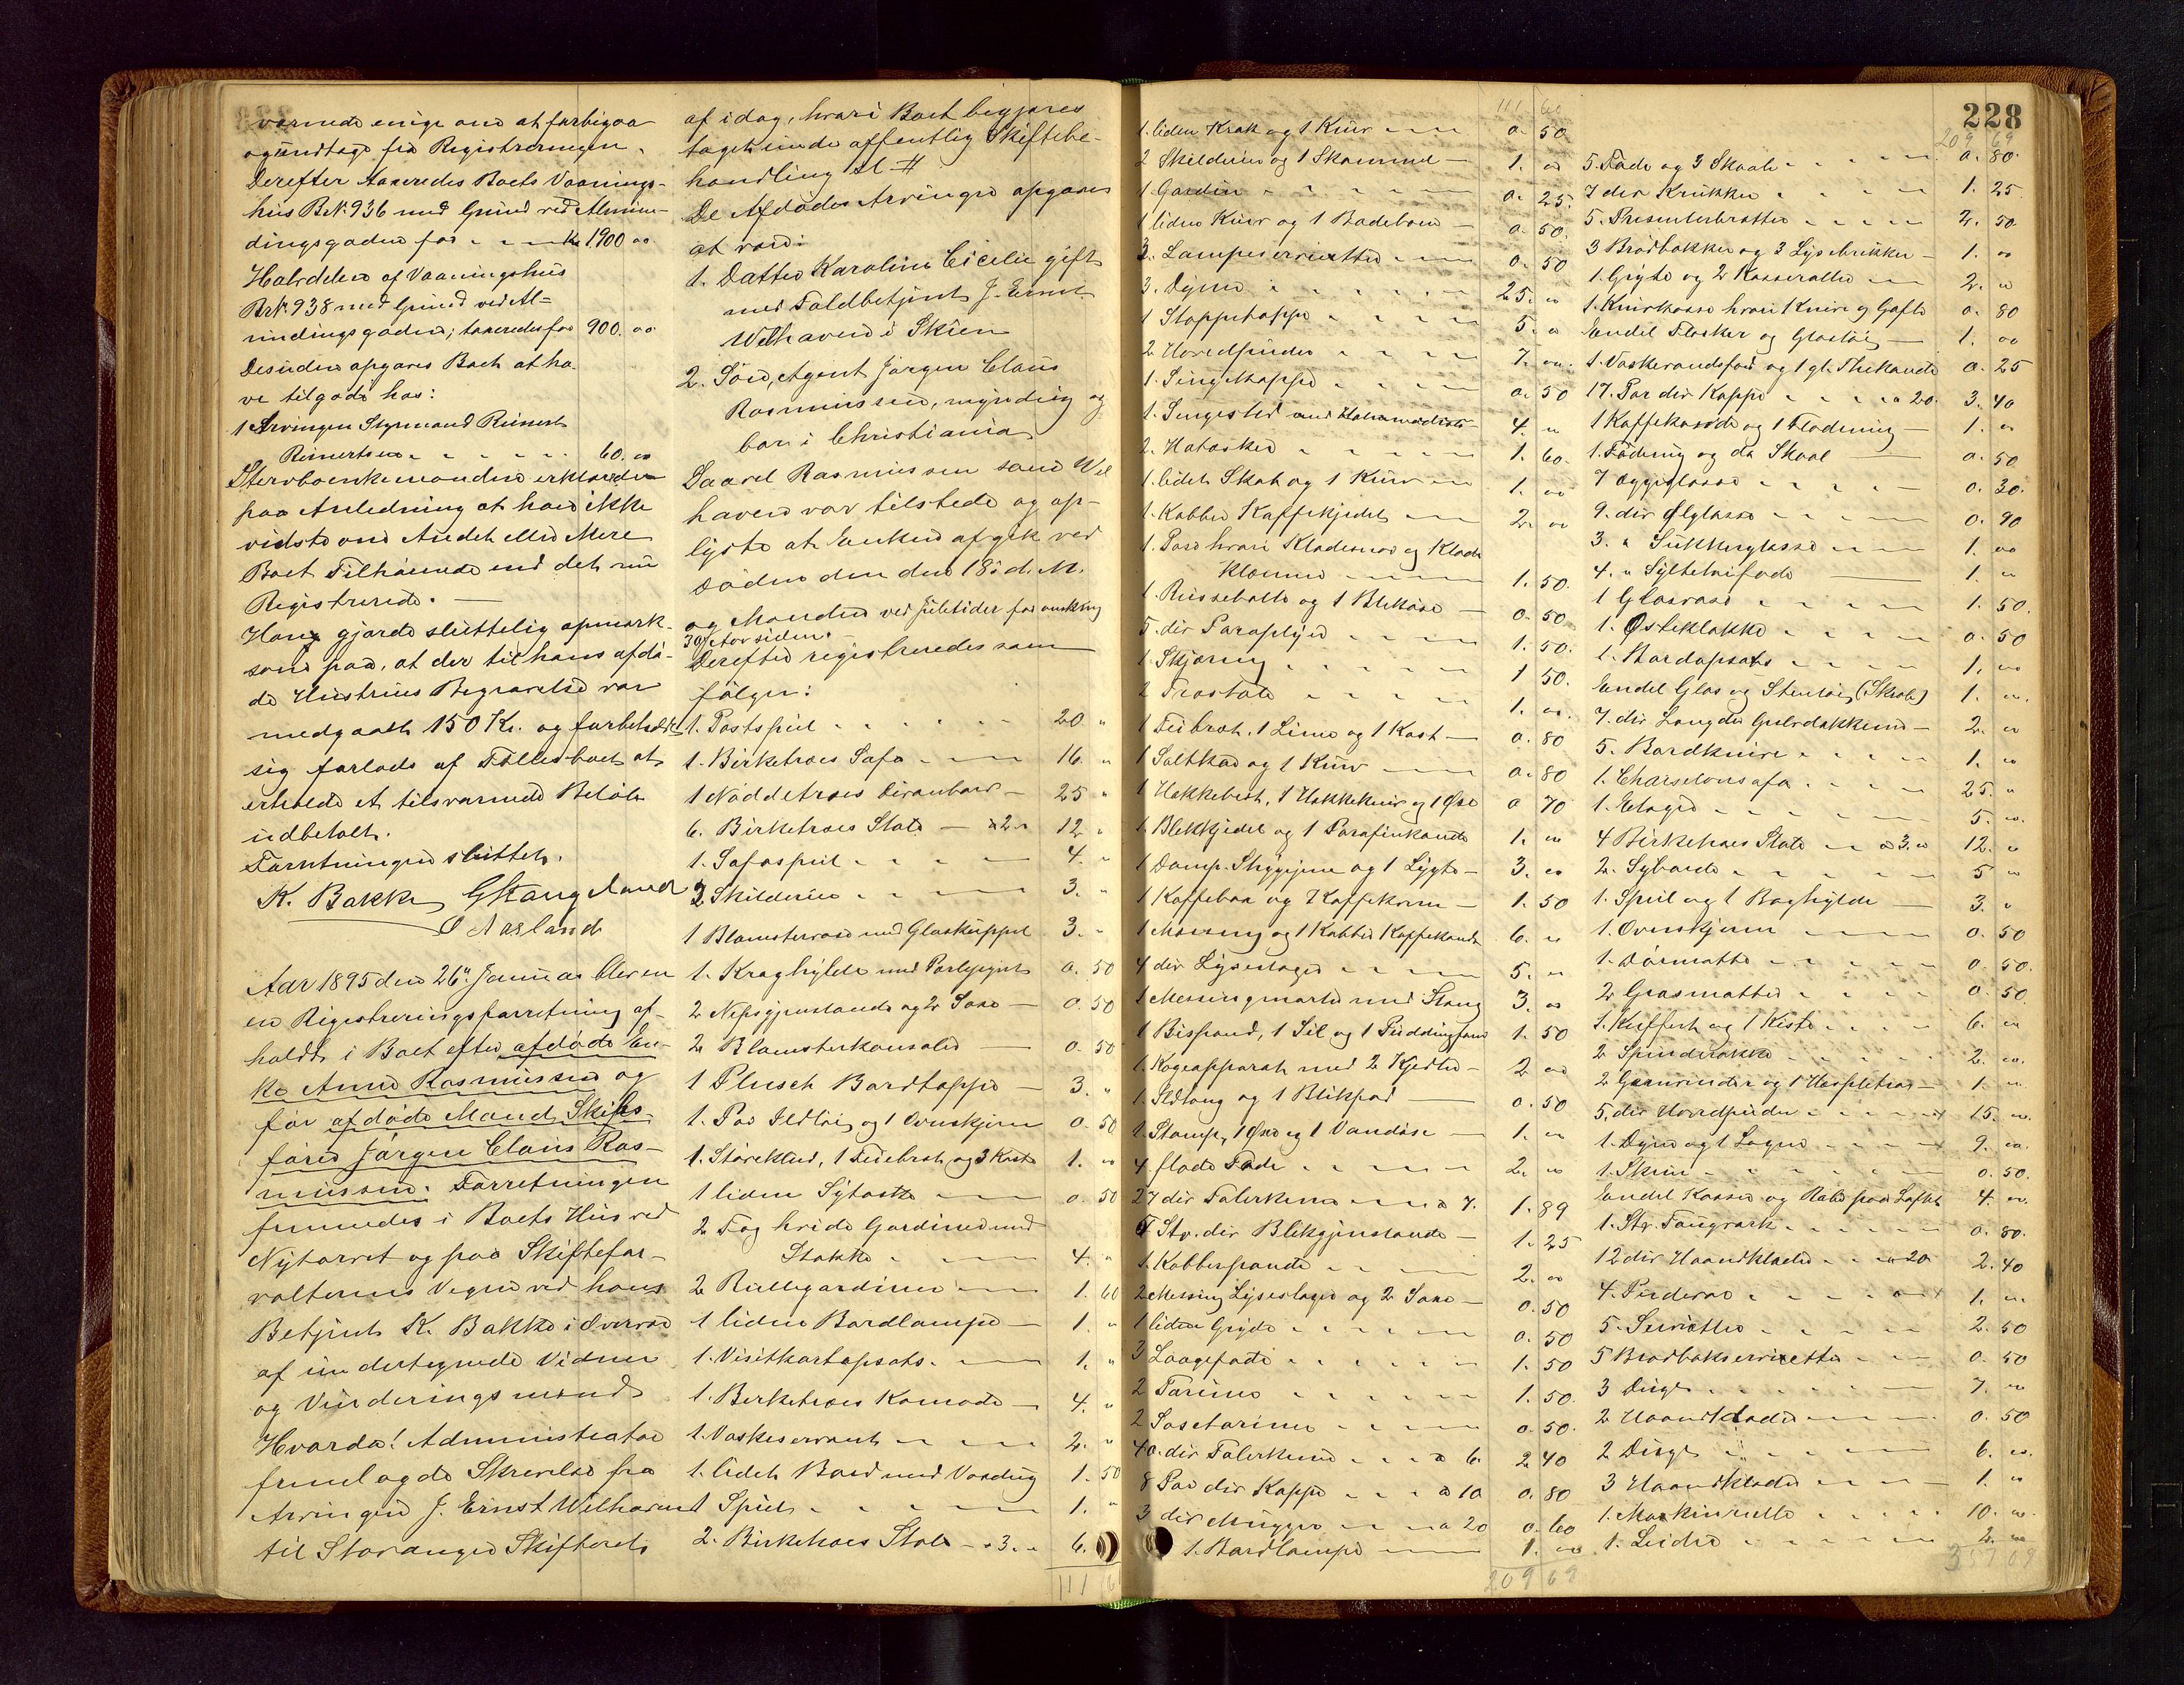 værende enige om at forbigaa
og undtage fra Registreringen.
Derefter taxeredes Boets Vaanings-
hus BrNo 936 med Grund ved Almin-
dingsgaden for Kr 1900 00
Halvdelen af Vaaningshus
BrNo 938 med Grund ved Al-
mindingsgaden; taxeredes for 900. 00
Desuden opgaves Boet at ha-
ve tilgode hos:
1 Arvingen Styrmand Reinert
Reinertsen 60. 00
Stervboenkemanden erklærede
paa Anledning at han ikke
vidste om Andet eller Mere
Boet Tilhørende end det nu
Registrerede. —
Han gjorde sluttelig opmærk-
som paa, at der til hans afdø-
de Hustrues Begravelse var
medgaaet 150 Kr. og forbeholdt
sig forlods af Fællesboet at
erholde et tilsvarende Beløb
udbetalt.
Forretningen sluttet.
K. Bakke GStangeland
O Aasland
Aar 1895 den 26de Januar blev en
en Registreringsforretning af-
holdt i Boet efter afdøde En-
ke Anne Rasmussen og
før afdøde Mand Skibs-
fører Jørgen Claus Ras-
mussen. Forretningen
fremmedes i Boets Hus ved
Nytorvet og paa Skiftefor-
valterens Vegne ved hans
Betjent K. Bakke i Overvær
af undertegnede Vidner
og Vurderingsmænd
Hvorda! Administrator
fremlagde Skrivelse fra
Arvingen J. Ernst Welhaven
til Stavanger Skifteret
af idag, hvori Boet begjæres
taget under offentlig Skiftebe-
handling
De Afdødes Arvinger opgaves
at være:
1. Datter Karoline Cicelie gift
med Toldbetjent J. Ernst
Welhaven i Skien
2. Søn, Agent Jørgen Claus
Rasmussen, myndig og
bor i Christiania
Saavel Rasmussen som Wel
haven var tilstede og op-
lyste at Enken afgik ved
Døden den 18de d. M.
og Manden ved Juletider for omkring
30 Aar siden.
Derefter registreredes som
følger:
1. Postspeil 20 "
1. Birketræes Sofa 16 "
1 Nøddetræes Divanbord — 25 "
6. Birketræes Stole — a 2 " 12 "
1. Sofaspeil 4. "
2 Skilderier 3. "
1 Blomstervase med Glaskuppel 3. "
1. Kraghylde med Porlepynt 0. 50
2 Nipsgjenstande og 2 Saxe — 0. 50
2 Blomsterkonsoler — 0. 50
1 Plusch Bordtæppe — 3. "
1. Par Ildtøi og 1 Ovnskjerm 0. 50
1. Støreklud, 1 Feiebret og 3 Koste 1. 00
1 liden Sytaske 0. 50
2 Fag hvide Gardiner med
Stokke 4. "
2 Rullegardiner 1. 60
1 liden Bordlampe — 1. "
1. Visitkortopsats. 1. "
1. Birketræes Komode — 4. "
1. Vaskeservant 2. "
1. lidet Bord med Voxdug 1. 50
1 Speil 1. "
2. Birketræes Stole — a 3. " 6. "
111 60
111 60
1. liden Krak og 1 Kurv 0. 50
2 Skilderier og 1 Skammel — 1. 00
1. Gardin 0. 25.
1 liden Kurv og 1 Badebom — 0. 50.
3. Lampeservietter 0. 50
3. Dyner 25. 00
1 Stoppetæppe 5. 00
2 Hovedpuder 7. 00.
1. Sengetæppe 0. 50
1. Sengested med Halmmadrats 4. 00
2. Hatæsker 1. 60.
1. lidet Skab og 1 Kurv 1. 00
1. Kobber Kaffekjedel 2. 00
1. Pose hvori Kladesnor og Klæde
Klemmer 1. 50.
1. Russebalte og 1 Blikøse — 0. 50
5. dir Paraplyer 1. 50.
1. Skjæring 1 50.
2 Træstole 1. 00.
1 Feibret, 1 Lime og 1 Kost — 0. 80
1 Saltkar og 1 Kurv 0. 80
1 Hakkebret, 1 Hakkekniv og 1 Øxe 0 70
1. Blikkjedel og 1 Parafinkande 1. 00
1 Damp-Strygejern og 1 Lygte — 3. 00
1 Kaffebrænder og 1 Kaffekværn — 1. 50
1 Messing og 1 Kobber Kaffekande 6. 00
4 dir Lysestager 5. 00
1 Messingmorter med Stang 3. 00
1 Bispand, 1 Sil og 1 Puddingform 1. 50
1. Kogeapparat med 2 Kjedler — 2 00
1. Ildtang og 1 Blikspand — 0. 50
1. Stamp, 1 Øse og 1 Vandøse — 1. 00
4 flade Fade 2. 00
27 dir Talerkener a 7. 1. 89
5 Stk. dir Blikgjenstande — 1. 25
1. Kobberpande 2. 00
2 Messing Lysestager og 2 Saxe — 0. 50
1 liden Gryde 0. 50
3 Laagefade 1. 50
2 Teriner 1. 50.
2 Sosetariner 0. 50.
40. dir Talerkener a 6. 2 40
8 Par dir Kopper a 10 0. 80
3 dir Mugger a 20 0. 60
1. Bordlampe 1. 00
209 69
228
209 69
5. Fade og 3 Skaale 0. 80.
7 dir Krukker 1. 25
5. Presenterbretter 2. 50.
3 Brødbakker og 3 Lysebrikker — 1. 00
1. Gryte og 2 Kasseroller 2. 00
1. Knivkasse hvori Knive og Gafler 0. 80
Endel Flasker og Glastøi — 1. 00
1. Vaskevandsfad og 1 gl. Thekande 0. 25
17. Par dir Kopper a 20. 3. 40
1 Kaffekande og 1 Flødemug — 1. 00
1. Fødering og do Skaal — 0. 50
7 Æggeglasse 0. 30.
9. dir Ølglasse 0. 90
3. " Sukkerglasse 1. 00
4. " Syltetøifade — 1. 00
1 Glasvase 1. 50.
1. Osteklokke 0. 50
1. Bordopsats 1, 00
Endel Glas og Stentøi, (Skab) 1. 00.
7. dir Længder Gulvdækkener — 2. 00
5. Bordknive 1. 00
1. Chaiselonsofa 25. 00
1. Etager 5. 00.
4 Birketræes Stole a 3. 00 12. 00
2. Syborde 5 00
1. Speil og 1 Boghylde — 3. 00
1. Ovnskjerm 0. 50
1. Dørmatte 0. 50.
2 Græsmatter 0. 50.
1. Kuffert og 1 Kiste 6. 00
2 Spinderokke 2. 00.
2 Garnvinder og 1 Haspletræ — 1. 00
5. dir Hovedpuder 15. 00.
1. Dyne og 1 Lagen 9. 00.
1. Skrin 0. 50.
Endel Kasser og Rab paa Loftet 4. 00.
1. Stk. Tougværk 0. 80.
12 dir Haandklæder a 20 2. 40
4. Pudevar 1. 00.
5. Servietter 2. 50
5 Brødbakservietter 0. 50
3 Duge 7. 00
2 Haandklæder 0. 50
2 Duge 6. 00.
3 Haandklæder 1. 00
1. Maskinrulle 10. 00.
1. Leider 2. 00
357 09